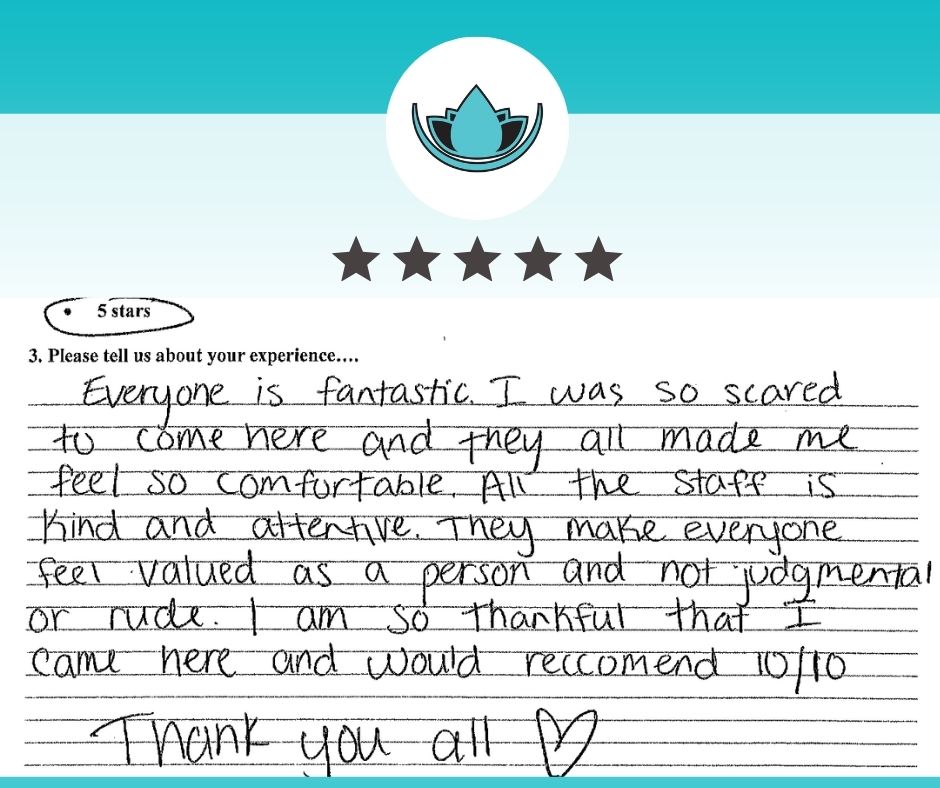 • 5 stars
3. Please tell us about your experience....
Everyone is fantastic. I was so scared
to come here and they all made me
feel so comfurtable. All the staff is
kind and attentive. They make everyone
feel valued as a person and not judgmental
or rude. I am so thankful that I
came here and would reccomend 10/10
Thank you all